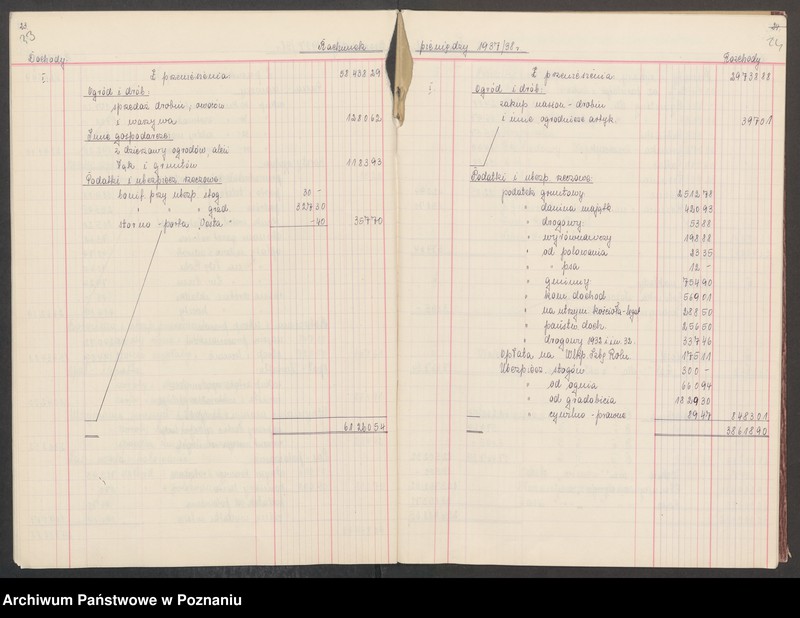 23.
23
Rachunek
Dochody
I. Z przeniesienia 58 438 29
Ogród i drób:
sprzedaż drobiu, owoców
i warzywa 1280 62
Inne gospodarcze:
z dzierżawy ogrodów, alei
łąk i gruntów 1183 93
Podatki i ubezpiecz. rzeczowe:
bonif. przy ubezp. stog. 30 -
" " " grad. 327 30
storno - porta "Vesta" - 40 357 70
61.260 54
24.
24
pieniędzy 1937/38 r.
Rozchody
I. Z przeniesienia 29738 88
Ogród i drób:
zakup nasion - drobiu
i inne ogrodnicze artyk. 397 01
Podatki i ubezp. rzeczowe:
podatek gruntowy 2512 78
" danina majątk. 420 93
" drogowy 53 88
" wyrównawczy 198 88
" od polowania 23 35
" " psa 12 -
" gminny 754 90
" kom. dochod. 569 01
" na utrzym. kościoła - 288 50
" państw. doch. 256 50
" drogowy 1932 337 46
opłata na Wlkp. Izbę Roln. 175 11
Ubezpiecz. stogów 300 -
" od ognia 660 94
" od gradobicia 1829 30
" cywilno - prawne 89.47 8.483.01
38.618.90
Archiwum Państwowe w Poznaniu